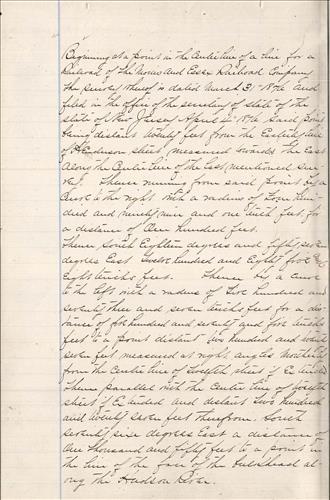 Beginning at a point in the Centre line of a line for a
Railroad of the Morris and Essex Railroad Company
the survey whereof is dated March 31st 1876 and
filed in the office of the secretary of state of the
state of New Jersey April 1876 Said point
being distant twenty feet from the Easterly line
of Henderson street, measured towards the East
along the Centre line of the last mentioned sur
vey. Thence running from said point by a
Curve to the right with a radius of Four hun
dred and ninety nine and one tenth feet, for
a distance of One hundred feet.
Thence South Eighteen degrees and fifty seven
degrees East Twelve hundred and Eighty five and
Eight tenths feet. Thence by a curve
to the left with a radius of five hundred and
seventy three and seven tenths feet for a dis-
tance of five hundred and seventy and five tenths
feet to a point distant two hundred and twenty
seven feet measured at right angles Northerly
from the Centre line of Twelfth street if Extended
Thence parallel with the Centre line of twelfth
street if Extended and distant two hundred
and twenty seven feet therefrom. South
seventy six degrees East a distance of
One thousand and fifty feet to a point in
the line of the face of the Bulkhead al
ong the Hudson River.